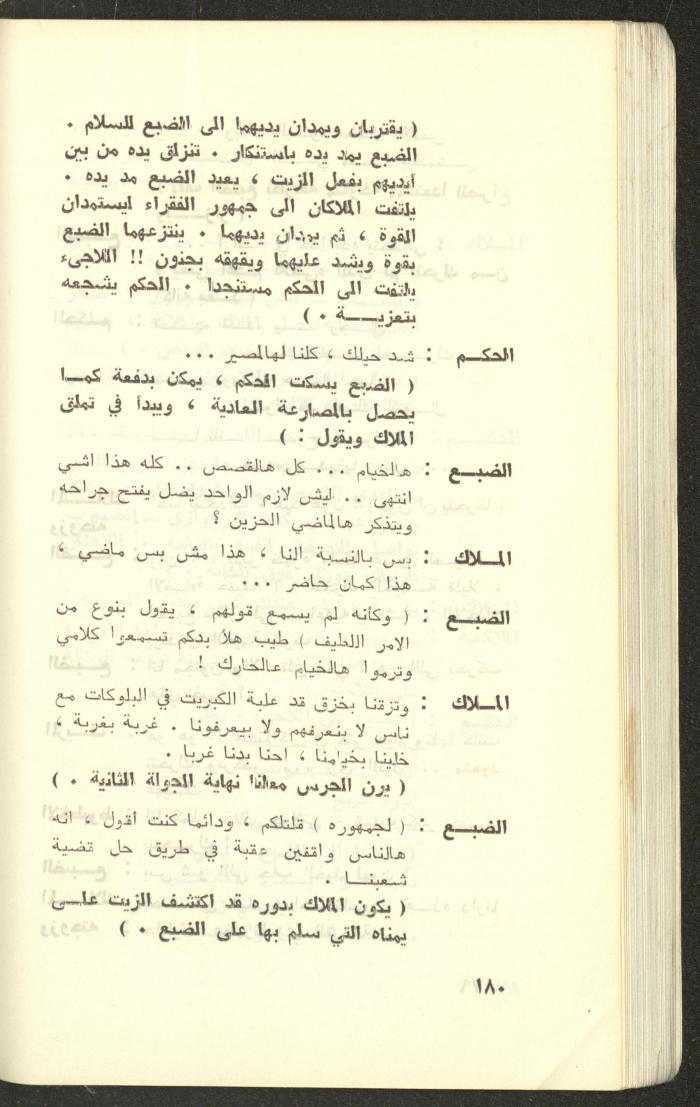 ( يقتربان ويمدان يديهما الى الضبع للسلام .
الضبع يمد يده باستنكار . تنزلق يده من بين
أيديهم بفعل الزيت ، يعيد الضبع مد يده .
يلتفت الملاكان الى جمهور الفقراء ليستمدان
القوة ، ثم يمدان يديهما . ينتزعهما الضبع
بقوة ويشد عليهما ويقهقه بجنون !! اللاجىء
يلتفت الى الحكم مستنجدا . الحكم يشجعه
بتعزيـــة . )
الحكـم : شد حيلك ، كلنا لهالمصير ...
( الضبع يسكت الحكم ، يمكن بدفعة كمـا
يحصل بالمصارعة العادية ، ويبدأ في تملق
الملاك ويقول : )
الضبـع : هالخيام ... كل هالقصص .. كله هذا اشي
انتهى .. ليش لازم الواحد يضل يفتح جراحه
ويتذكر هالماضي الحزين ؟
المـلاك : بس بالنسبة النا ، هذا مش بس ماضي ،
هذا كمان حاضر ...
الضبـع : ( وكأنه لم يسمع قولهم ، يقول بنوع من
الامر اللطيف ) طيب هلأ بدكم تسمعوا كلامي
وترموا هالخيام عالحارك !
المـلاك : وتزقنا بخزق قد علبة الكبريت في البلوكات مع
ناس لا بنعرفهم ولا بيعرفونا . غربة بغربة ،
خلينا بخيامنا ، احنا بدنا غربا .
( يرن الجرس معلنا نهاية الجولة الثانية . )
الضبـع : ( لجمهوره ) قلتلكم ، ودائما كنت أقول ، انه
هالناس واقفين عقبة في طريق حل قضية
شعبنــا .
( يكون الملاك بدوره قد اكتشف الزيت علـى
يمناه التي سلم بها على الضبع . )
١٨٠